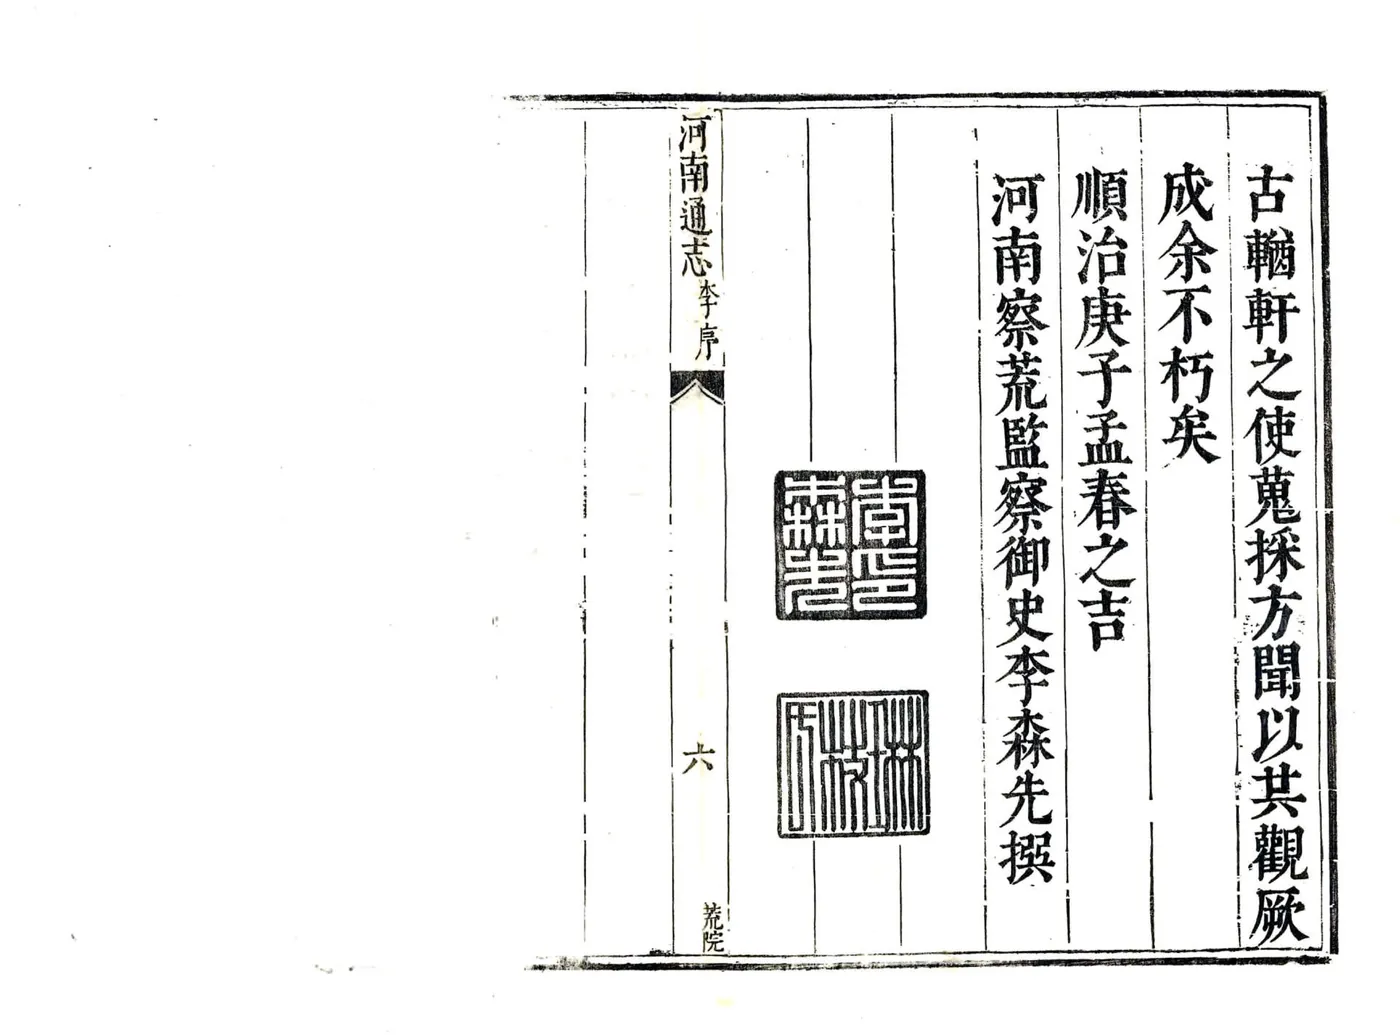 古輶軒之使蒐採方聞以共觀厥
成余不朽矣
順治庚子孟春之吉
河南察荒監察御史李森先撰
李印森先
琳枝氏
河南通志
李序
六
荒院